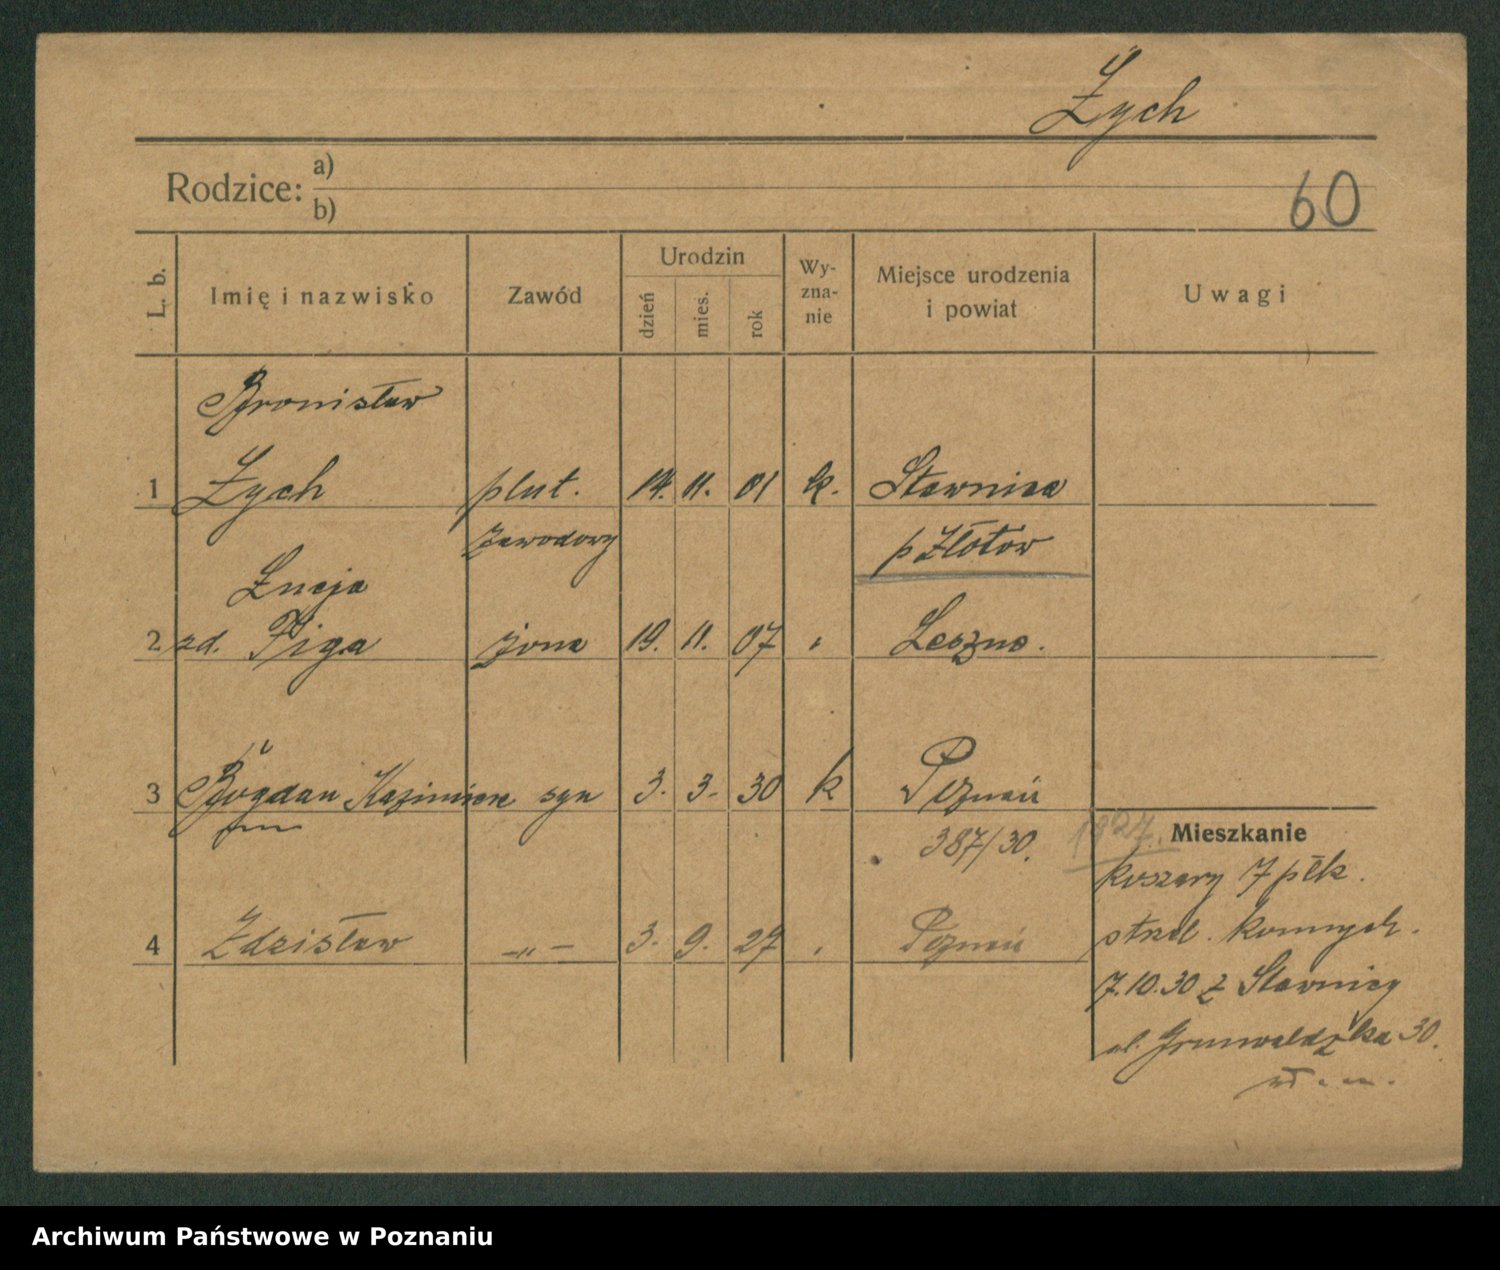 Zych
Rodzice: a)
b)
60
L. b.
Imię i nazwisko
Zawód
Urodzin
dzień
mies.
rok
Wy-
zna-
nie
Miejsce urodzenia
i powiat
Uwagi
Bronisław
1 Zych plut. 14. 11. 01 k. Stawnica
zawodowy p Złotów
Łucja
2 zd. Figa żona 19. 11. 07 " Leszno.
3 Bogdan Kazimierz syn 3. 3. 30 k Poznań
387/30.
1827.
Mieszkanie
koszary 7 płk.
4 Zdzisław -„- 3. 9. 27 " Poznań
strzel. konnych.
7.10.30 z Stawnicy
ul. Grunwaldzka 30.